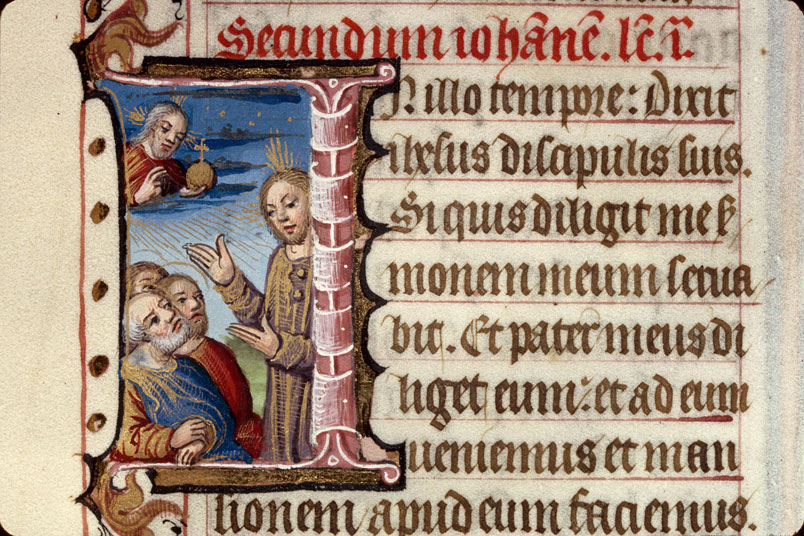 Secundum iohānē. lc̄. i̅.
In illo tempore: Dixit
ihesus discipulis suis.
Si quis diligit me ser
monem meum serua
bit. Et pater meus di
liget eum: et ad eum
ueniemus et man
sionem apud eum faciemus.